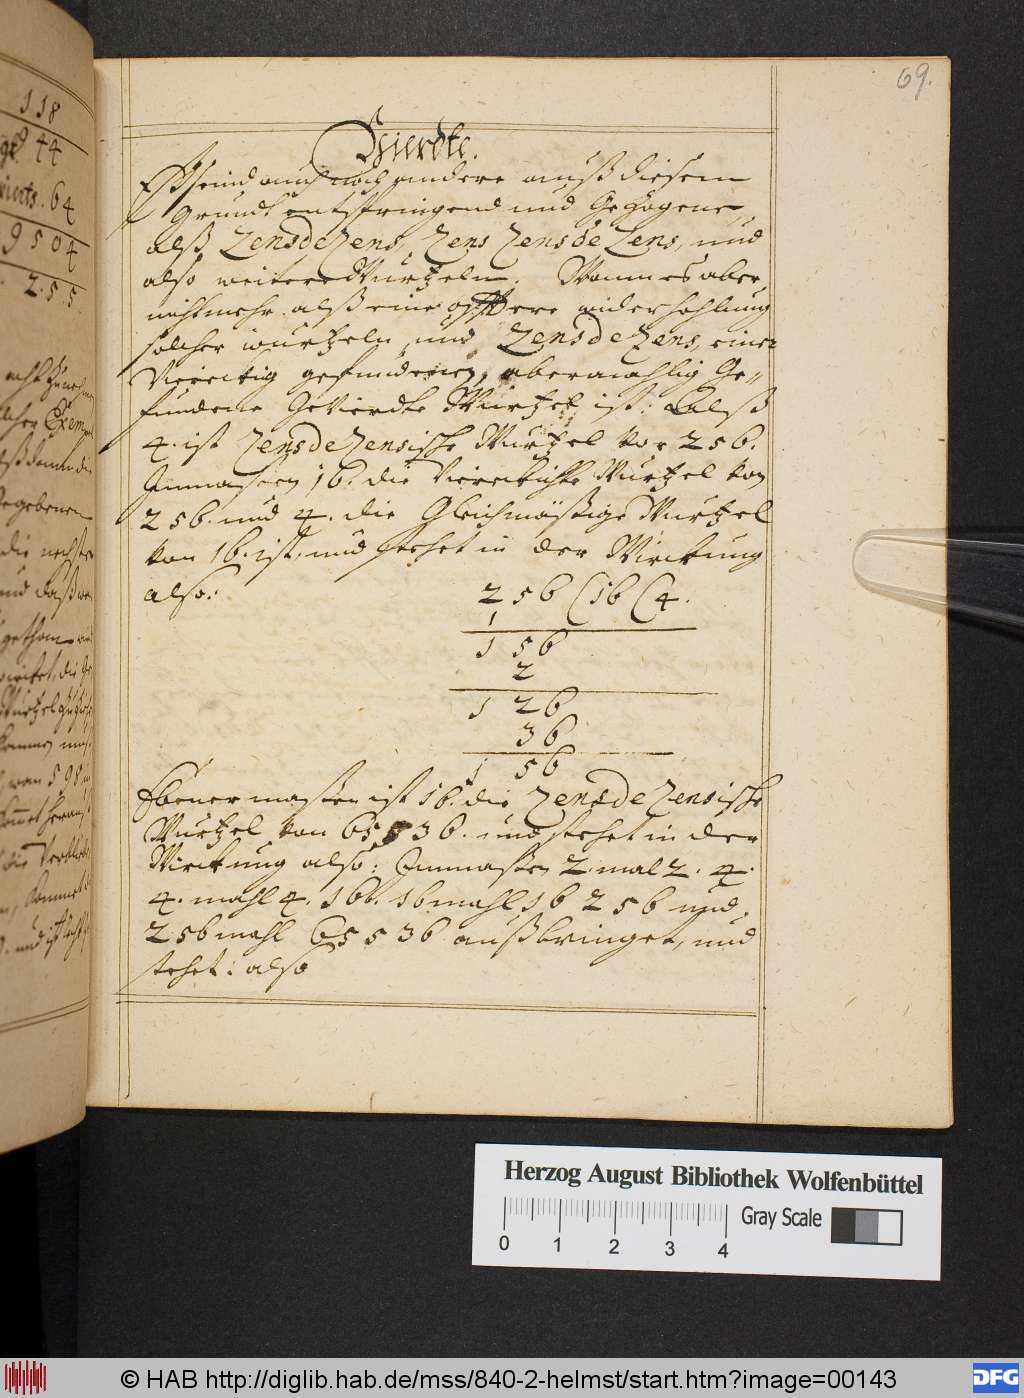 118
44
64
9504
2.55
69.
Vierdte.
Eß seind auch noch andere auß diesem
Grundt entspringend und Gezogene,
alß Zensdezens, Zens Zensde Zens, und
also weitere Wurtzeln. Wann es aber
nicht mehr alß eine öfftere widerhohlung
solcher wurtzeln, und Zensdezens, einer
Viereckig gefundenen, abermahlig Ge„
fundene Gevierdte Wurtzel ist: Alß
4. ist Zensdezensische Wurtzel von 256.
Immassen 16. die Viereckichte Wurtzel von
256. und 4. die Gleichmäßige Wurtzel
von 16. ist, und stehet in der Wirckung
also:
256 (16 (4.
1
1 56
2
1 26
36
1 56
Ebener massen ist 16. die Zensdezensische
Wurtzel von 65536. und stehet in der
Wirckung also: Immassen 2. mal 2. 4.
4. mahl 4. 16. 16 mahl 16 256 und
256 mahl 65536 außbringet, und
stehet: also
Herzog August Bibliothek Wolfenbüttel
0 1 2 3 4 Gray Scale
© HAB http://diglib.hab.de/mss/840-2-helmst/start.htm?image=00143
DFG